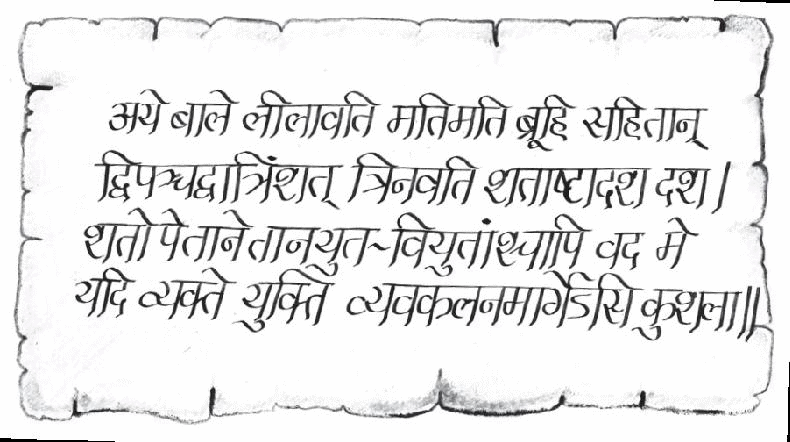 अये बाले लीलावति मतिमति ब्रूहि सहितान्
द्विपञ्चद्वात्रिंशत् त्रिनवति शताष्टादश दश।
शतोपेतानेतानयुत-वियुतांश्चापि वद मे
यदि व्यक्ते युक्ति व्यवकलनमार्गेऽसि कुशला॥